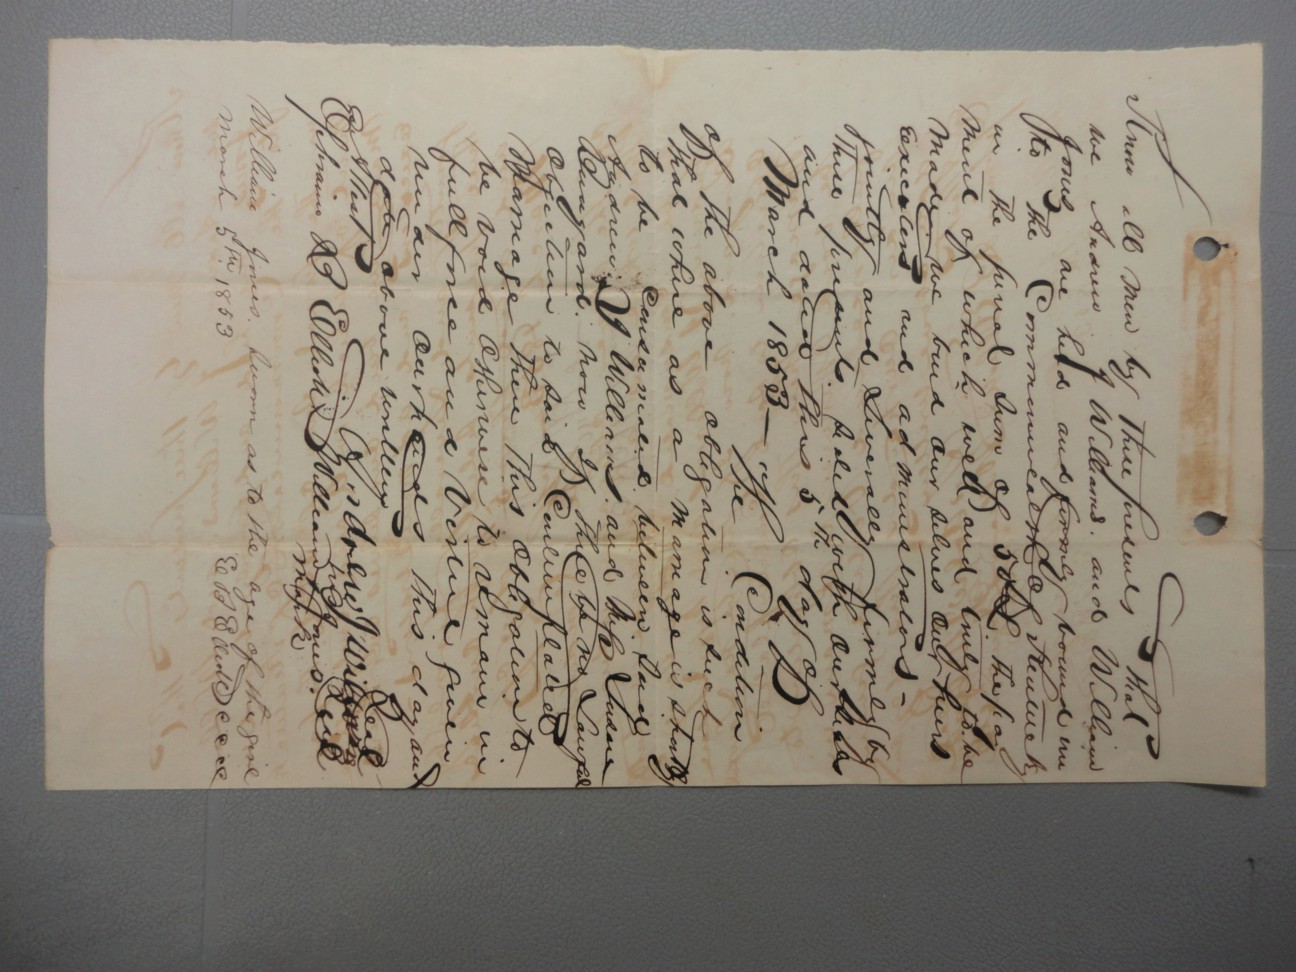 Know all men by these presents that
we Andrew J Williams. and William
Jones are held and firmly bound un
to the Commonwealth of Kentucky
in the penal sum of 50£ the pay
ment of which well and truly to be
Made we bind our selves our heirs
Executors and administrators -
jointly and Severally firmly by
these presents. Seled with our Seals
and dated this 5th day of
March 1853 - The Condition
of the above obligation is such
that where as a marrage is shortly
to be Consumated between Said
Andrew J Williams. and Miss Susan
now If there be no Lawful
Objection to said Contemplated
Marrage then this obligation to
be void otherwise to remain in
full force and virtue given
under our hands this day and
date above written
Attest Andrew J Williams Seal
Ephraim B Elliott William Jones. Seal
his mark
William Jones. Sworn as to the age of the girl
March 5th 1853 E B Elliott